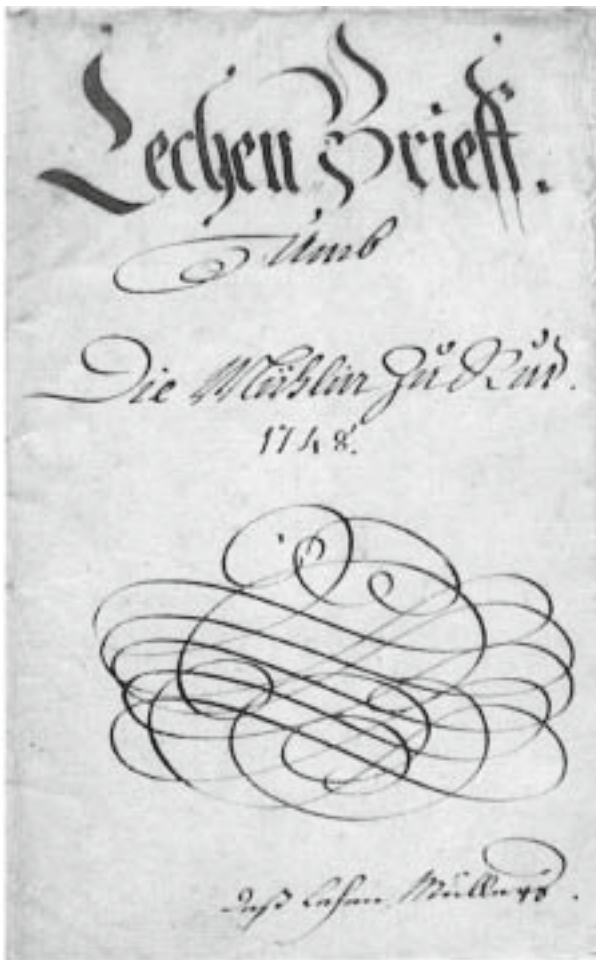 Lechen Brieff.
Umb
Die Mühlin Zů Růd.
1748.
deß Lehen Müllers.